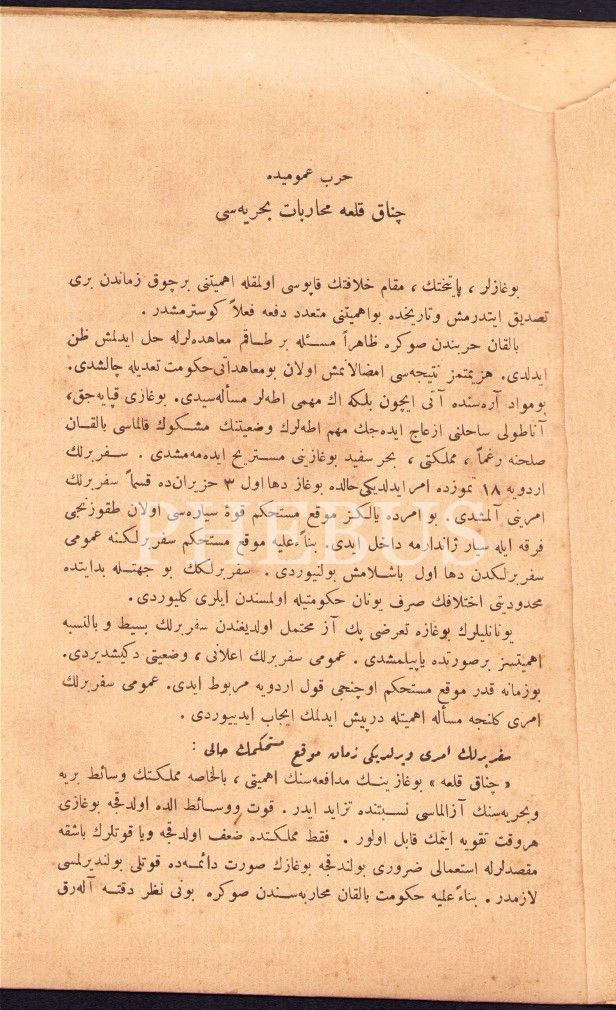 حرب عموميده
چناق قلعه محاربات بحريه‌سى
بوغازلر ، پايتختك ، مقام خلافتك قاپوسى اولمقله اهميتنى برچوق زماندن برى
تصديق ايتدرمش وتاريخده بواهميتنى متعدد دفعه فعلاً كوسترمشدر .
بالقان حربندن صوكره ظاهراً مسئله بر طاقم معاهده‌لرله حل ايدلمش ظن
ايدلدى. هزيمتمز نتيجه‌سى امضالانمش اولان بومعاهداتى حكومت تعديله چالشدى.
بومواد آره‌سنده آتى ايچون بلكه اك مهمى اطه‌لر مسأله‌سيدى. بوغازى قپايه‌جق،
آناطولى ساحلنى ازعاج ايده‌جك مهم اطه‌لرك وضعيتنك مشكوك قالماسى بالقان
صلحنه رغماً ، مملكتى ، بحر سفيد بوغازينى مستريح ايده‌مه‌مشدى . سفربرلك
اردويه ١٨ تموزده امر ايدلديكى حالده بوغاز دها اول ٣ حزيران‌ده قسماً سفربرلك
امرينى آلمشدى. بو امرده يالكز موقع مستحكم قوۀ سياره‌سى اولان طقوزنجى
فرقه ايله سيار ژاندارمه داخل ايدى. بناءًعليه موقع مستحكم سفربرلكنه عمومى
سفربرلكدن دها اول باشلامش بولنيوردى . سفربرلكك بو جهتسله بدايتده
محدوديتى اختلافك صرف يونان حكومتيله اولمسندن ايلرى كليوردى.
يونانليلرك بوغازه تعرضى پك آز محتمل اولديغندن سفربرلك بسيط و بالنسبه
اهميتسز برصورتده ياپيلمشدى . عمومى سفربرلك اعلانى ، وضعيتى دكيشديردى.
بوزمانه قدر موقع مستحكم اوچنجى قول اردويه مربوط ايدى. عمومى سفربرلك
امرى كلنجه مسأله اهميتله درپيش ايدلمك ايجاب ايدييوردى .
سفربرلك امرى ويرلديكى زمان موقع مستحكمك حالى :
« چناق قلعه » بوغازينك مدافعه‌سنك اهميتى ، بالخاصه مملكتك وسائط بريه
وبحريه‌سنك آزالماسى نسبتنده تزايد ايدر . قوت ووسائط الده اولدقجه بوغازى
هروقت تقويه ايتمك قابل اولور . فقط مملكتده ضعف اولدقجه ويا قوتلرك باشقه
مقصدلرله استعمالى ضرورى بولندقجه بوغازك صورت دائمه‌ده قوتلى بولنديرلمسى
لازمدر . بناءًعليه حكومت بالقان محاربه‌سندن صوكره بونى نظر دقته آله‌رق
PHEBUS